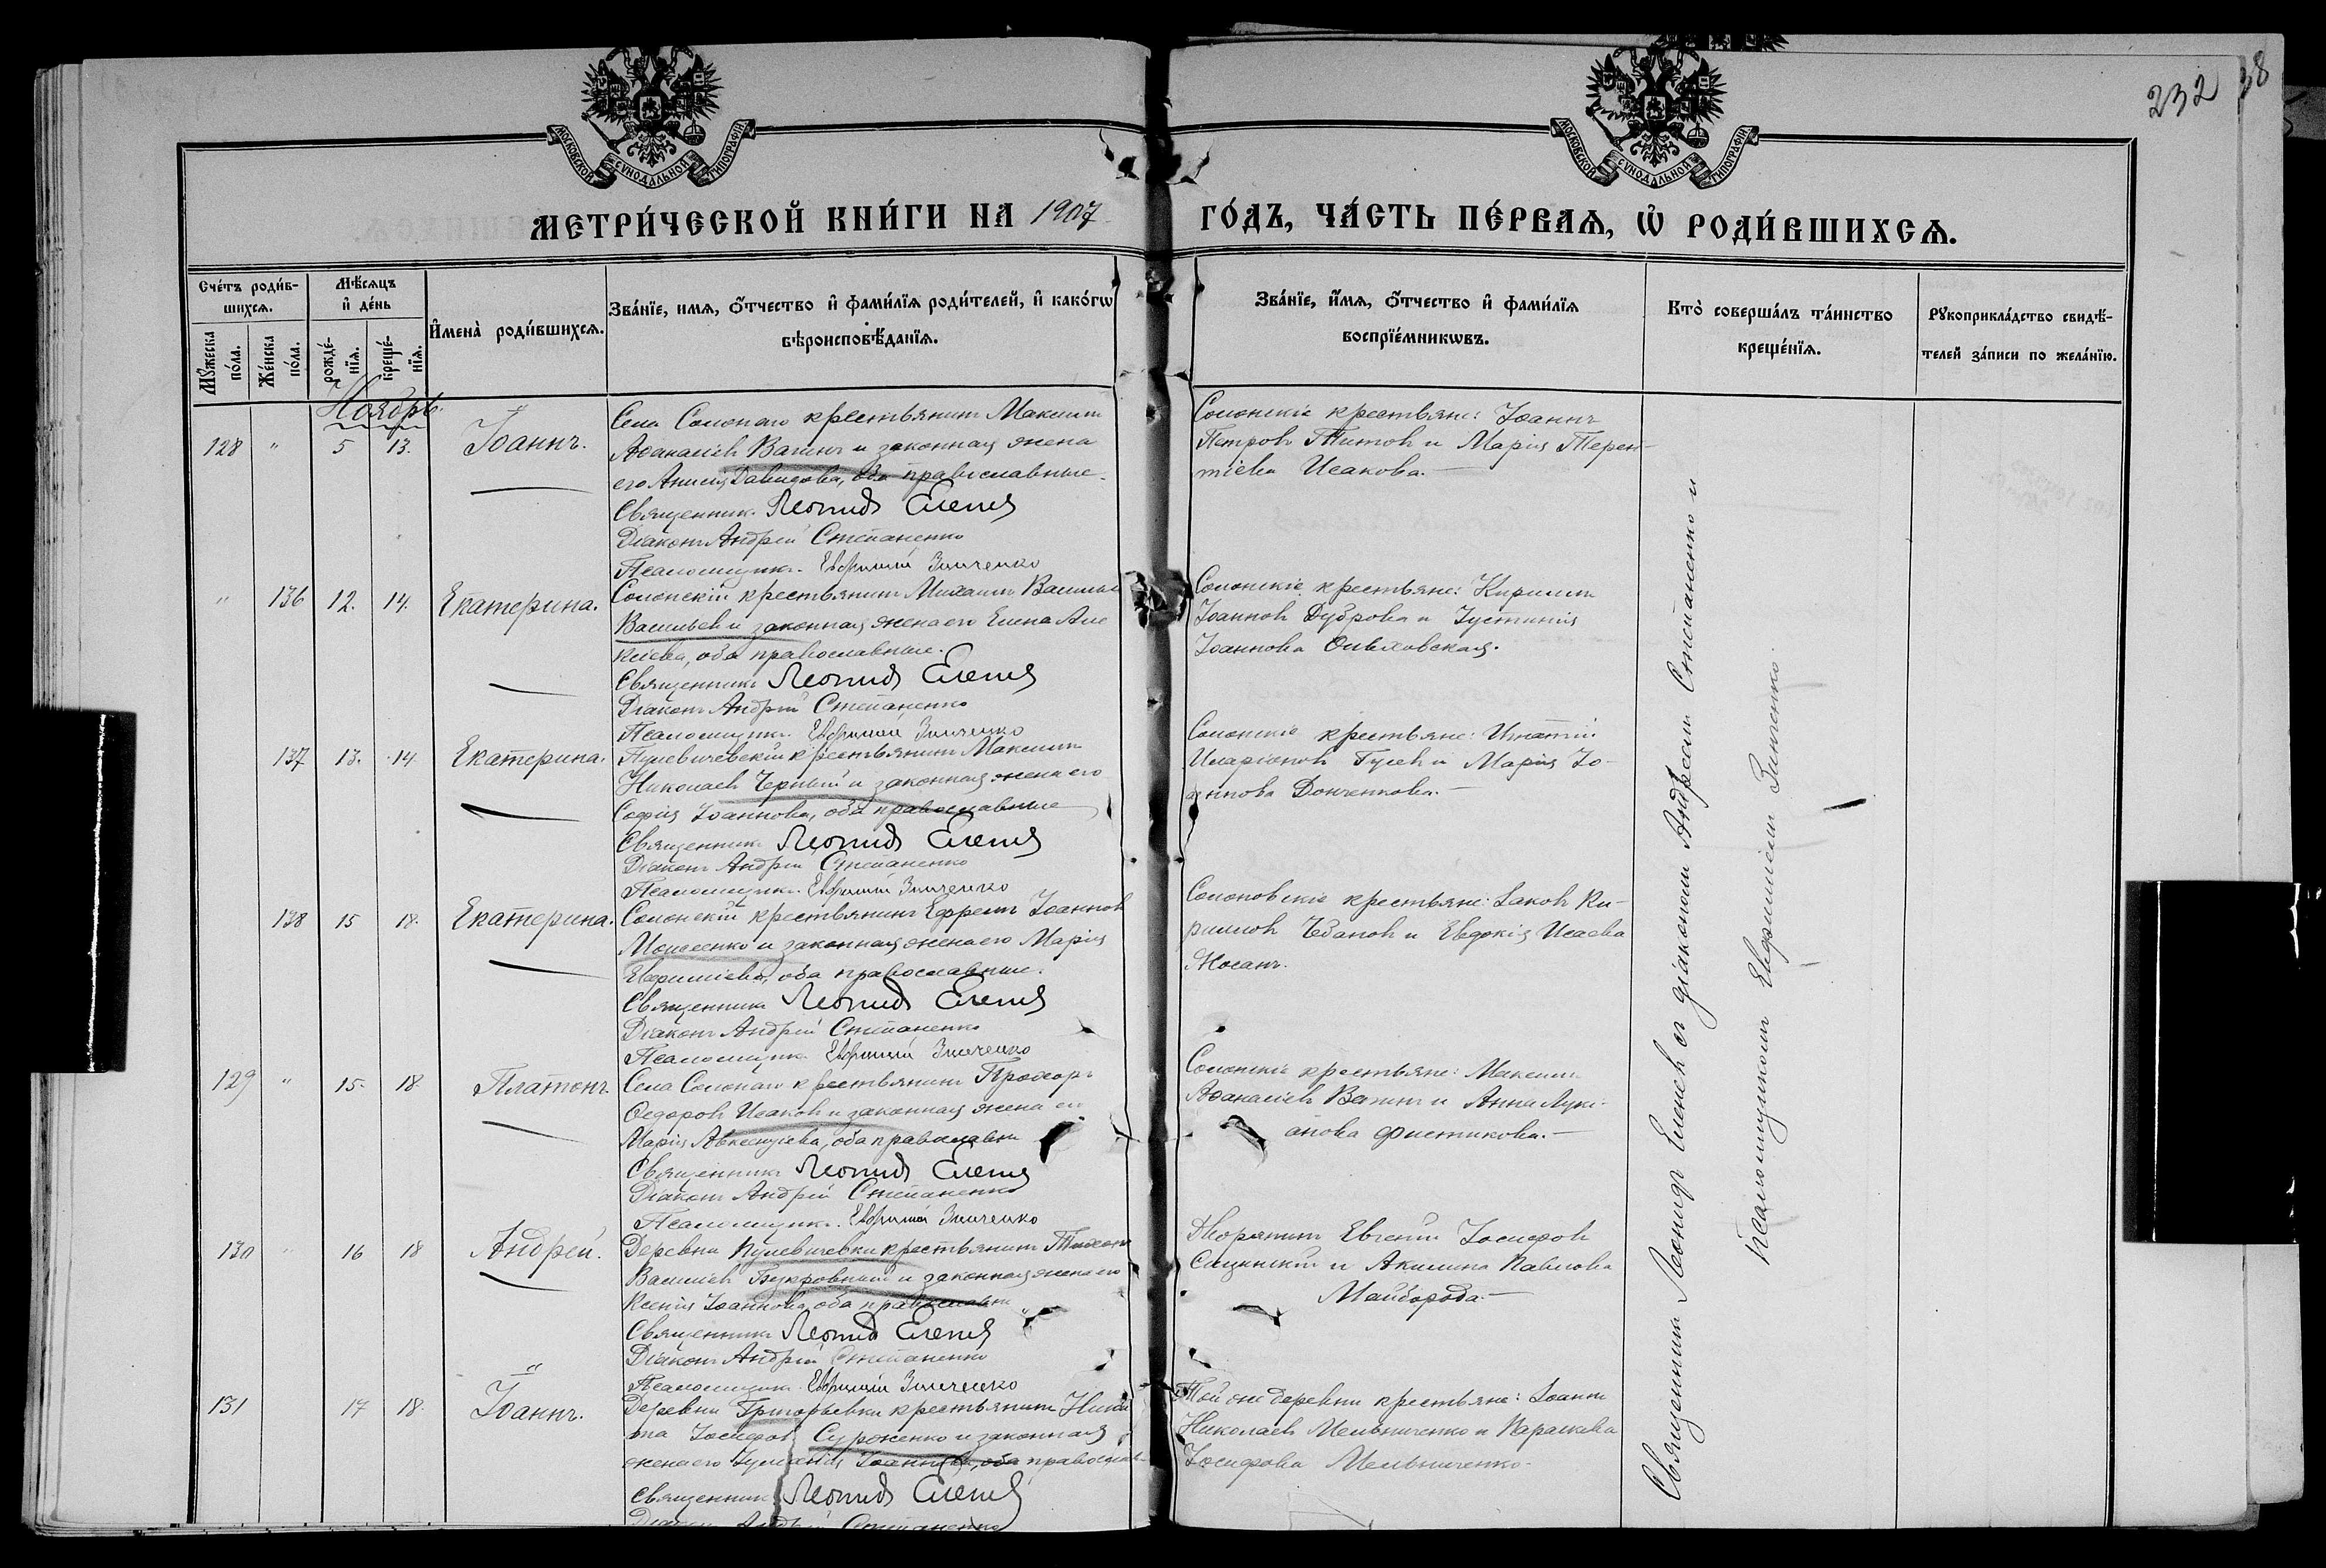 232
38
МОСКОВСКОЙ СУНОДАЛЬНОЙ ТИПОГРАФІИ
МОСКОВСКОЙ СУНОДАЛЬНОЙ ТИПОГРАФІИ
МЕТРИ́ЧЕСКОЙ КНИ́ГИ НА 1907 ГО́ДЪ, ЧА́СТЬ ПЕ́РВАѦ, Ѡ҆ РОДИ́ВШИХСѦ.
Сче́тъ роди́в-
шихсѧ.
Мꙋжеска по́ла.
Же́нска по́ла.
Мѣ́сѧцъ
и҆ де́нь
рожде́-
нїѧ.
креще́-
нїѧ.
И҆мена̀ роди́вшихсѧ.
Зва́нїе, имѧ, ѻ҆́тчество и҆ фами́лїѧ роди́телей, и҆ како́гѡ
вѣроисповѣ́данїѧ.
Зва́нїе, и҆́мѧ, ѻ҆́тчество и҆ фами́лїѧ
воспрїе́мникѡвъ.
Кто̀ соверша́лъ та́инство
креще́нїѧ.
Рꙋкоприкла́дство свидѣ́-
телей за́писи по жела́нїю.
Ноябрь.
128 " 5 13. Іоаннъ.
Села Солонаго крестьянинъ Максимъ
Аѳанасіевъ Вагинъ и законная жена
его Анисія Давидова, оба православные.
Священникъ Леонидъ Еленев
Діаконъ Андрей Степаненко
Псаломщикъ Евфимій Зинченко
Солонскіе крестьяне: Іоаннъ
Петровъ Титовъ и Марія Терен-
тіева Исакова.
" 136 12. 14. Екатерина.
Солонскій крестьянинъ Михаилъ Васильев
Васильевъ и законная жена его Елена Але
ксіева, оба православные.
Священникъ Леонидъ Еленев
Діаконъ Андрей Степаненко
Псаломщикъ Евфимій Зинченко
Солонскіе крестьяне: Кириллъ
Іоанновъ Дуброва и Іустинія
Іоаннова Ольховская.
137 13. 14. Екатерина.
Пулевичевскій крестьянинъ Максимъ
Николаевъ Черный и законная жена его
Софія Іоаннова, оба православные
Священникъ Леонидъ Еленев
Діаконъ Андрей Степаненко
Псаломщикъ Евфимій Зинченко
Солонскіе крестьяне: Игнатій
Иларіоновъ Гусевъ и Марія Іо-
аннова Донченкова.
138 15 18. Екатерина.
Солонскій крестьянинъ Ефремъ Іоанновъ
Моисеенко и законная жена его Марія
Евфиміева, оба православные.
Священникъ Леонидъ Еленев
Діаконъ Андрей Степаненко
Псаломщикъ Евфимій Зинченко
Солоновскіе крестьяне: Іаковъ Ки-
рилловъ Чебановъ и Евдокія Исаева
Жосанъ.
129 " 15. 18. Платонъ.
Села Солонаго крестьянинъ Прохоръ
Ѳедоровъ Исаковъ и законная жена его
Марія Авксентіева, оба православн
Священникъ Леонидъ Еленев
Діаконъ Андрей Степаненко
Псаломщикъ Евфимій Зинченко
Солонскіе крестьяне: Максимъ
Аѳанасіевъ Вагинъ и Анна Луки-
анова Фистикова.
130 " 16 18 Андрей.
Деревни Пулевичевки крестьянинъ Тихонъ
Василіевъ и законная жена его
Ксенія Іоаннова, оба православн
Священникъ Леонидъ Еленев
Діаконъ Андрей Степаненко
Псаломщикъ Евфимій Зинченко
Дворянинъ Евгеній Іосифовъ
Сицинскій и Акилина Павлова
Майборода.
131 17 18. Іоаннъ.
Деревни Григорьевки крестьянинъ Ники
та Іосифовъ Сурженко и законная
жена его Іуліанія Іоаннова, оба православ
Священникъ Леонидъ Еленев
Діаконъ Андрей Степаненко
Той же деревни крестьяне: Іоаннъ
Николаевъ Мельниченко и Параскева
Іосифова Мельниченко.
Священникъ Леонидъ Еленевъ съ діакономъ Андреемъ Степаненко и
псаломщикомъ Евфиміемъ Зинченко.